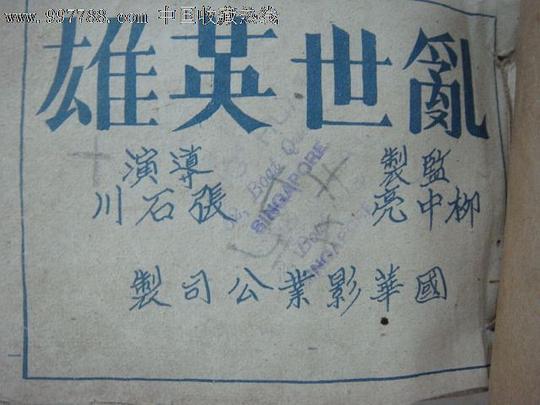 www.997788.com 中国收藏热线
亂世英雄
監製 導演
柳中亮 張石川
國華影業公司製
SINGAPORE